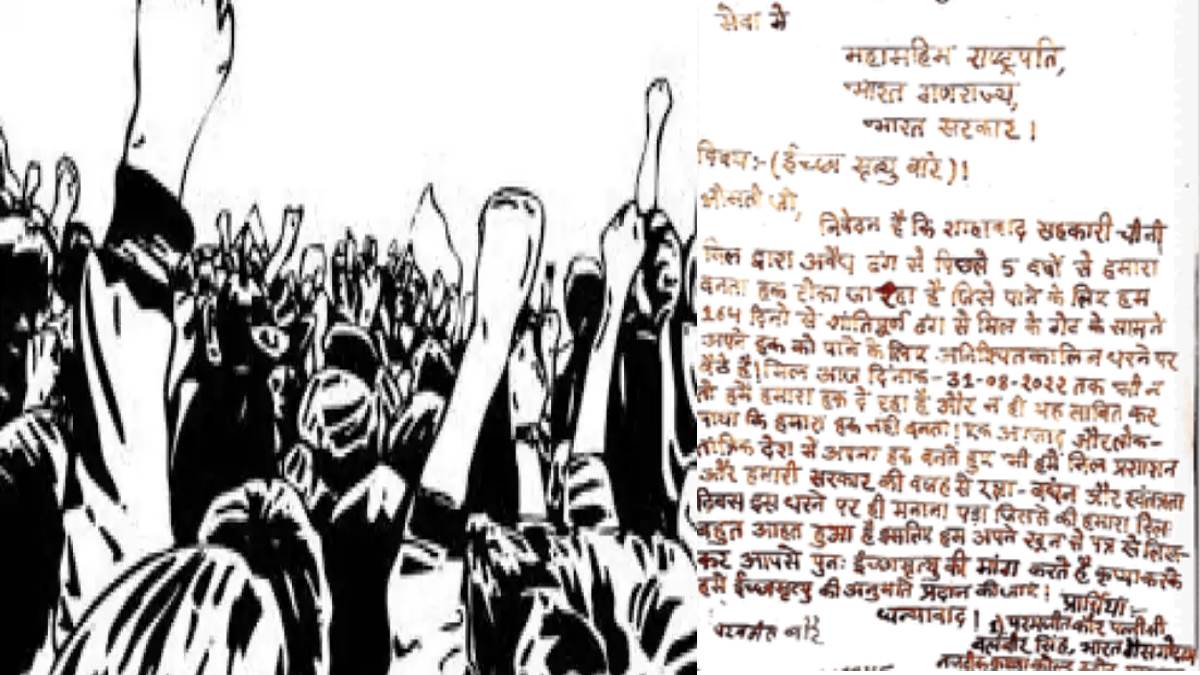 सेवा में
महामहिम राष्ट्रपति,
भारत गणराज्य,
भारत सरकार।
विषय:-(ईच्छा मृत्यु बारे)।
श्रीमती जी,
निवेदन है कि शाहाबाद सहकारी चीनी
मिल द्वारा अवैध ढंग से पिछले 5 वर्षो से हमारा
बनता हक रोका जा रहा है जिसे पाने के लिए हम
164 दिनों से शांतिपूर्ण ढंग से मिल के गेट के सामने
अपने हक को पाने के लिए अनिश्चितकालिन धरने पर
बैठे हैं। मिल आज दिनांक-31-08-2022 तक भी न
तो हमें हमारा हक दे रहा है और न ही यह साबित कर
पाया कि हमारा हक नही बनता। एक आजाद और लोक-
तांत्रिक देश में अपना हक बनते हुए भी हमें मिल प्रशाशन
और हमारी सरकार की वजह से रक्षा-बंधन और स्वंतत्रता
दिवस इस धरने पर ही मनाना पड़ा जिससे की हमारा दिल
बहुत आहत हुआ है इसलिए हम अपने खून से पत्र से लिख-
कर आपसे पुनः ईच्छामृत्यु की मांग करते है कृप्या करके
हमें ईच्छामृत्यु की अनुमति प्रदान की जाए।
प्रार्थिया:-
धन्यावाद। 1) परमजीत कौर पत्नी श्री
परमजीत कौर
बलबीर सिंह, भारत गैस गोदाम
नजदीक कृष्णा कोल्ड स्टोर